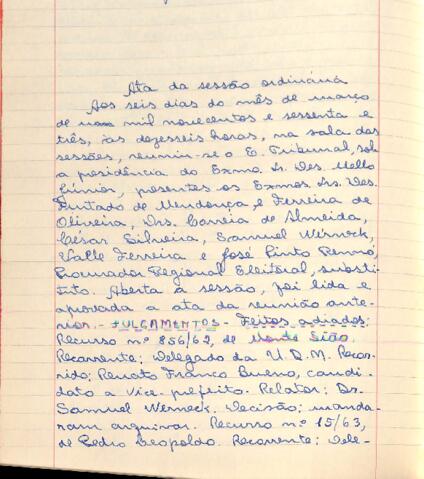 Ata da sessão ordinária
Aos seis dias do mês de março
de mil novecentos e sessenta e
três, às dezesseis horas, na sala das
sessões, reuniu-se o E. Tribunal, sob
a presidência do Exmo. Sr. Des. Mello
Júnior, presentes os Exmos. Srs. Des.
Furtado de Mendonça e Ferreira de
Oliveira, Drs. Correia de Almeida,
César Silveira, Samuel Werneck,
Valle Ferreira e José Pinto Renno,
Procurador Regional Eleitoral, substi-
tuto. Aberta a sessão, foi lida e
aprovada a ata da reunião ante-
rior.- JULGAMENTOS - Feitos adiados:
Recurso nº 856/62, de Monte Sião.
Recorrente: Delegado da U.D.N. Recor-
rido: Renato Franco Bueno, candi-
dato a vice-prefeito. Relator: Dr.
Samuel Werneck. Decisão: manda-
ram arquivar. Recurso nº 15/63,
de Pedro Leopoldo. Recorrente: Dele-